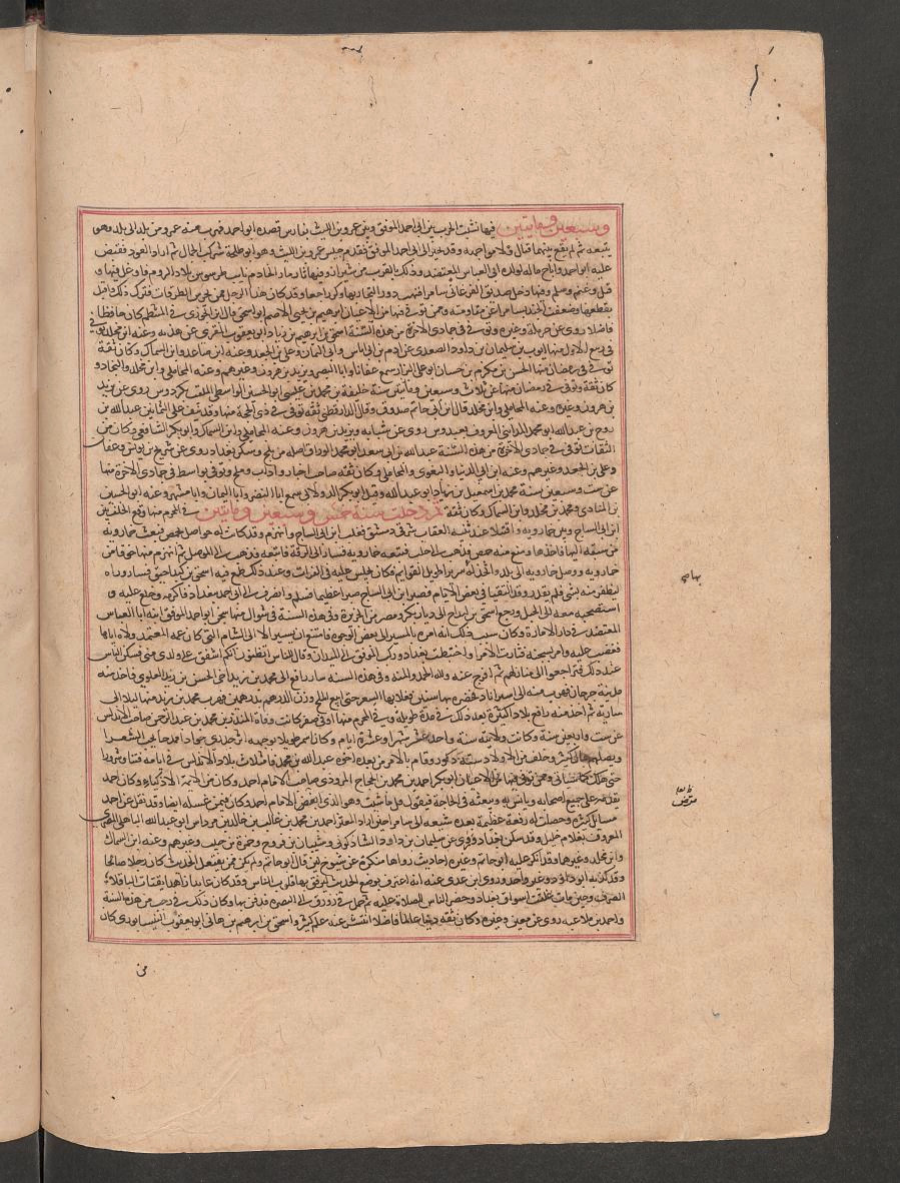 وسبعين ومايتين فيها نشبت الحرب بين ابى احمد الموفق وبين عمرو بن الليث بفارس فقصده ابو احمد فهرب منه عمرو من بلد الى بلد وهو
يتبعه ثم لم يقع بينهما قتال ولا مواجهة وقد تحيز الى ابى احمد الموفق مقدم جيش عمرو بن الليث وهو ابو طلحة شركب الجمال ثم اراد العود فقبض
عليه ابو احمد واباح ماله لولده ابى العباس المعتضد وذلك بالقرب من شيراز وفيها غزا يازمان الخادم نايب طرسوس بلاد الروم فاوغل فيها و
قتل وغنم وسلم وفيها دخل صديق الفرغانى سامرا فنهب دور التجار بها وكر راجعا وقد كان هذا الرجل ممن يحرس الطرقات فترك ذلك واقبل
يقطعها وضعفت الجند بسامرا عن مقاومته وممن توفى فيها من الاعيان ابرهيم بن
فاضلا روى عن حرملة وغيره وتوفى فى جمادى الاخرة من هذه السنة اسحق بن ابرهيم بن زياد ابو يعقوب المقرى عن هدبه وعنه ابن مخلد توفى
فى ربيع الاول منها ايوب بن سليمان بن داود الصغدى عن ادم بن ابى اياس وابى اليمان وعلى بن الجعد وعنه ابن صاعد وابن السماك وكان ثقة
توفى فى رمضان منها الحسن بن مكرم بن حسان ابو على البزار سمع عفانا وابا النضر ويزيد بن هرون وغيرهم وعنه المحاملى وابن مخلد والنجاد و
كان ثقة وتوفى فى رمضان منها عن ثلاث وسبعين سنة خلف بن محمد بن عيسى ابو الحسين الواسطى الملقب بكردوس روى عن يزيد
بن هرون وغيره وعنه المحاملى وابن مخلد قال ابن ابى حاتم صدوق وقال الدارقطنى ثقة توفى فى ذى الحجة منها وقد نيف على الثمانين عبد الله بن
روح بن عبد الله ابو محمد المداينى المعروف بعبدوس روى عن شبابه ويزيد بن هرون وعنه المحاملى وابن السماك وابو بكر الشافعى وكان من
الثقات توفى فى جمادى الاخرة من هذه السنة عبد الله بن ابى سعد ابو محمد الوراق اصله من بلخ وسكن بغداد روى عن شريح بن يونس وعفان
وعلى بن الجعد وغيرهم وعنه ابن ابى الدنيا والبغوى والمحاملى وكان ثقة صاحب اخبار واداب وملح وتوفى بواسط فى جمادى الاخرة منها
عن ست وسبعين سنة محمد بن اسمعيل بن زياد ابو عبد الله وقيل ابو بكر الدولابى سمع ابا النضر وابا اليمان وابا مسهر وعنه ابو الحسين
بن المنادى ومحمد بن مخلد وابن السماك وكان ثقة ثم دخلت سنة خمس وسبعين ومايتين فى المحرم منها وقع الخلف بين
ابن ابى الساج وبين خمارويه واقتتلا عند ثنية العقاب شرقى دمشق فغلب ابن ابى الساج وانهزم وقد كانت له حواصل بحمص فبعث خمارويه
من سبقه اليها فاخذها ومنع منه حمص فذهب الى حلب فتبعه خمارويه فسار الى الرقة فاتبعه فذهب الى الموصل ثم انهزم منها خوفا من
خمارويه ووصل خمارويه الى بلد واتخذ له سرير طويل القوايم فكان يجلس عليه فى الفرات وعند ذلك طمع فيه اسحق بن كنداجيق فسار وراه
ليظفر منه بشى فلم يقدر وقد التقيا فى بعض الايام فصبر ابن ابى الساج صبرا عظيما فسلم وانصرف الى ابى احمد ببغداد فاكرمه وخلع عليه و
استصحبه معه الى الجبل ورجع اسحق بن كنداج الى ديار بكر ومضر من الجزيرة وفى هذه السنة فى شوال منها سجن ابو احمد الموفق ابنه ابا العباس
المعتضد فى دار الامارة وكان سبب ذلك انه امره بالمسير الى بعض الوجوه فامتنع ان يسير الا الى الشام التى كان عمه المعتمد ولاه اياها
فغضب عليه وامر بسجنه فثارت الامرا واختبطت بغداد وركب الموفق الى الميدان وقال للناس اتظنون انكم اشفق على ولدى منى فسكن الناس
عند ذلك فتراجعوا الى منازلهم ثم افرج عنه ولله الحمد والمنة وفى هذه السنة سار رافع الى محمد بن زيد اخى الحسن بن زيد العلوى فاخذ منه
مدينة جرجان فهرب منه الى استراباد فحصره بها سنتين فغلا بها السعر حتى بيع الملح وزن الدرهم بدرهمين فهرب محمد بن زيد منها ليلا الى
سارية ثم اخذ منه رافع بلادا كثيرة بعد ذلك فى مدة طويلة وفى المحرم منها او فى صفر كانت وفاة المنذر بن محمد بن عبد الرحمن صاحب الاندلس
عن ست واربعين سنة وكانت ولايته سنة واحد عشر شهرا وعشرة ايام وكان اسمر طويلا بوجهه اثر جدرى جوادا ممدحا يحب الشعرا
ويصلهم بمال كثير وخلف من الاولاد ستة ذكور وقام بالامر من بعده اخوه عبد الله بن محمد فامتلات بلاد الاندلس فى ايامه فتنا وشرورا
حتى هلك كما سياتى وممن توفى فيها من الاعيان ابو بكر احمد بن محمد بن الحجاج المروذى صاحب الامام احمد وكان من الايمة الاذكياء وكان احمد
يقدمه على جميع اصحابه ويانس به ويبعثه فى الحاجة فيقول قل ما شيت وهو الذى اغمض الامام احمد وكان فيمن غسله ايضا وقد نقل عن احمد
مسايل كثيرة وحصلت له رفعة عظيمة بعده شيعه الى سامرا حين اراد الغزو احمد بن محمد بن غالب بن خالد بن مرداس ابو عبد الله الباهلى البصرى
المعروف بغلام خليل وقد سكن بغداد وروى عن سليمان بن داود الشاذكونى وشيبان بن فروخ وقرة بن حبيب وغيرهم وعنه ابن السماك
وابن مخلد وغيرهما وقد انكر عليه ابو حاتم وغيره احاديث رواها منكرة عن شيوخ مجهولين قال ابو حاتم ولم يكن ممن يفتعل الحديث كان رجلا صالحا
وقد كذبه ابو داود وغير واحد وروى ابن عدى عنه انه اعترف بوضع الحديث ليرقق بها قلوب الناس وقد كان عابدا زاهدا يقتات الباقلاء
الصرف وحين مات غلقت اسواق بغداد وحضر الناس الصلاة عليه ثم حمل فى زورق الى البصرة فدفن بها وكان ذلك فى رجب من هذه السنة
واحمد بن ملاعب روى عن ابن معين وغيره وكان ثقة دينا عالما فاضلا انتشر عنه علم كثير واسحق بن ابرهيم بن هانى ابو يعقوب النيسابورى كان
من